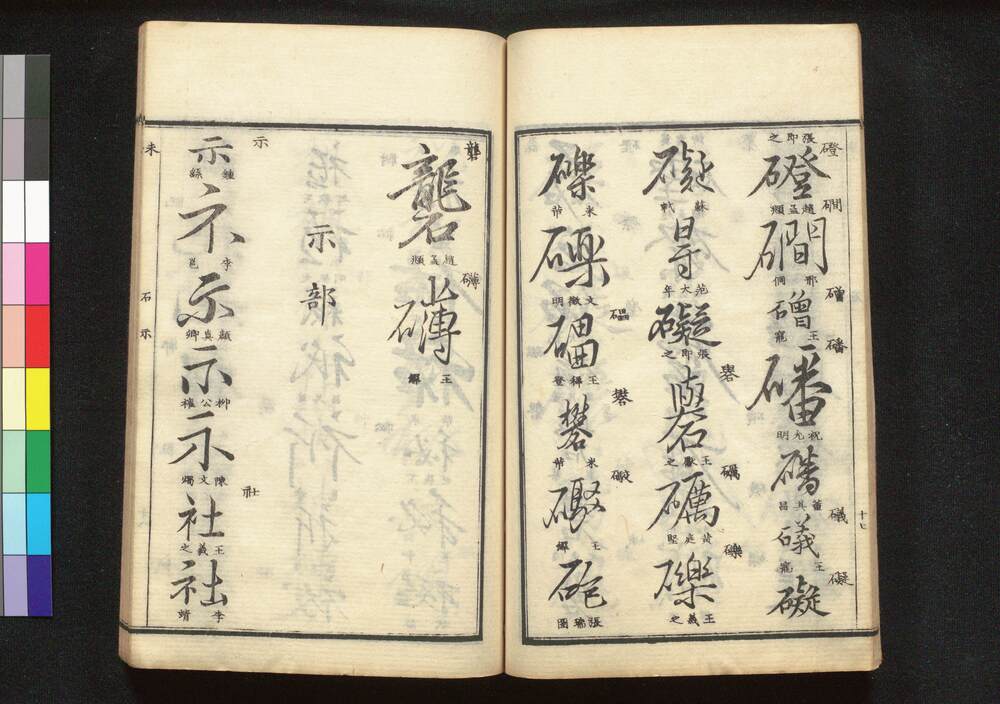 磴
張即之
磴
趙孟頫
磵
磵
邢侗
磳
磳
王寵
磻
磻
祝允明
磻
董其昌
礒
礒
王寵
礙
礙
礙
蘇軾
㝵
范大年
礙
張即之
礜
礜
王獻之
礪
礪
黃庭堅
礫
礫
王羲之
礫
米芾
礫
文徵明
礧
王穉登
礬
礬
米芾
王鐸
砲
張瑞圖
十七
礱
礱
趙孟頫
礴
礴
王鐸
示部
示
示
鍾繇
李邕
示
顏真卿
示
柳公權
示
陳文燭
社
社
王羲之
社
李靖
未
石示